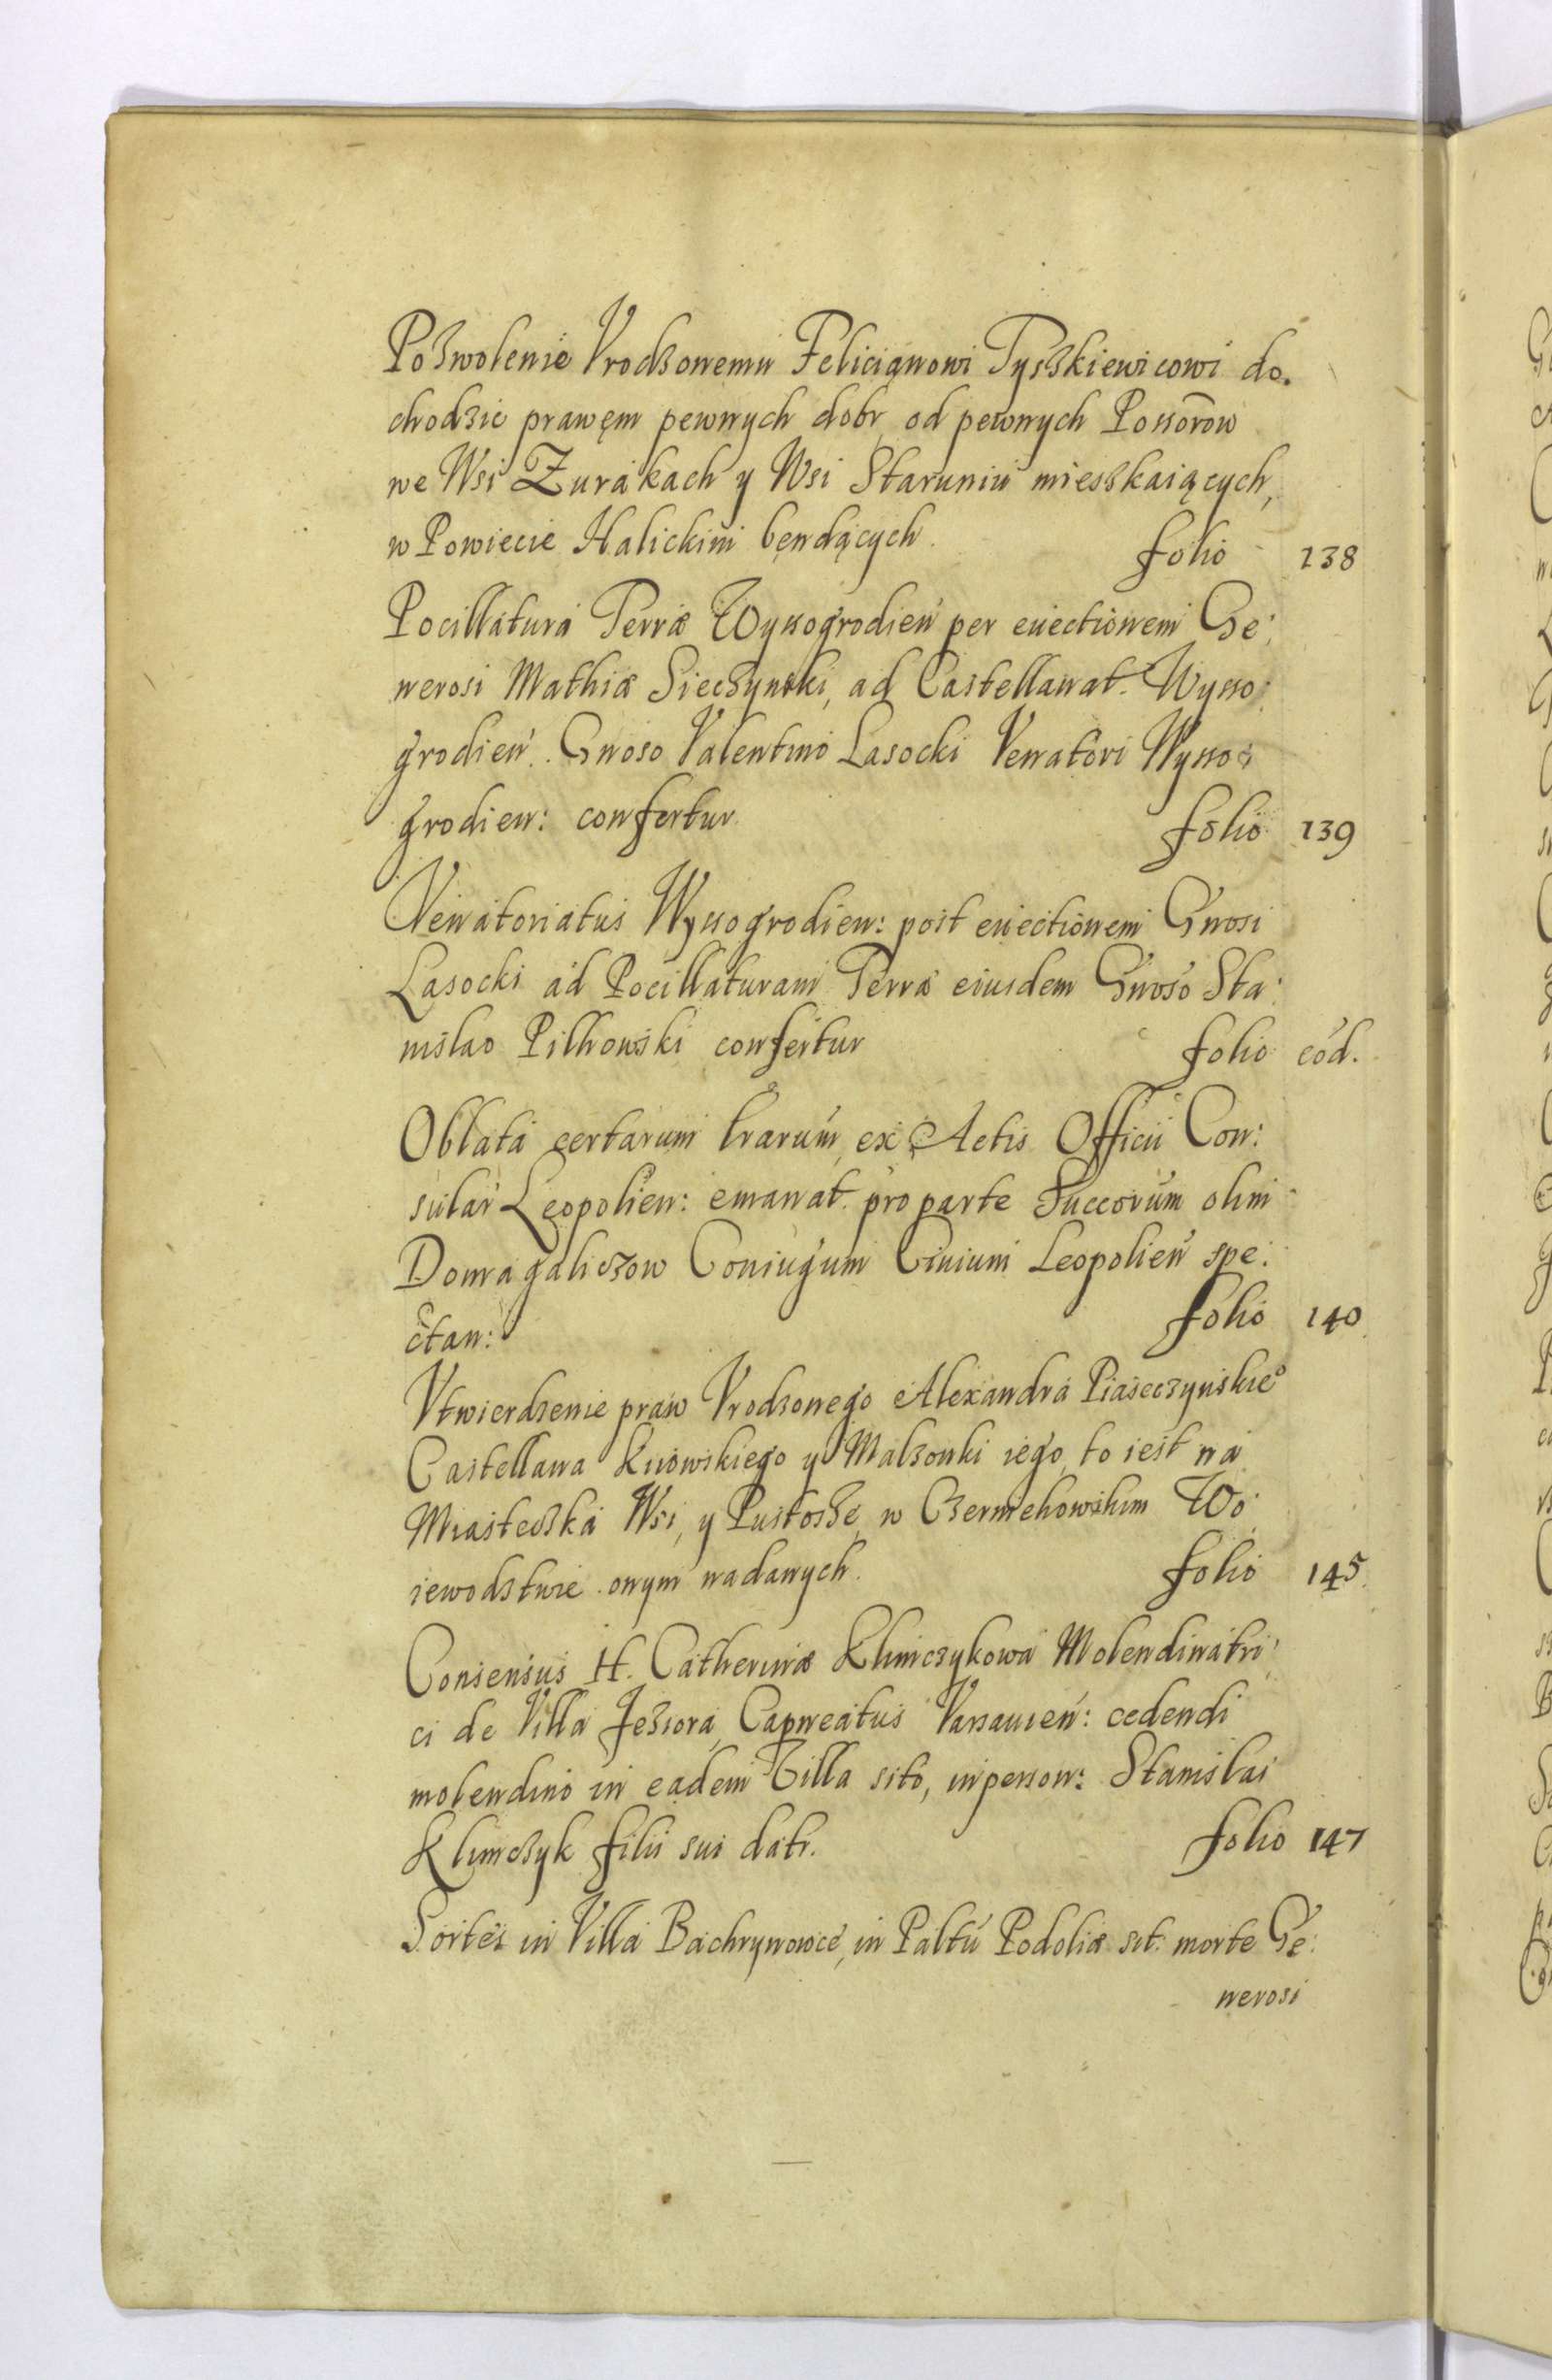 Pozwolenie Vrodzonemu Felicianowi Tyszkiewicowi do.
chodzic prawęm pewnych dobr, od pewnych Possorow
we Wsi Zurakach y Wsi Staruniu mieszkaiących,
w Powiecie Halickim bęndących. folio 138
Pocillatura Terræ Wyssogrodien per euectionem Ge:
nerosi Mathiæ Sieczynski, ad Castellanat. Wysso:
grodien. Gnoso Valentino Lasocki Venatori Wysso:
grodien: confertur folio 139
Venatoriatus Wyssogrodien: post euectionem Gnosi
Lasocki ad Pocillaturam Terræ eiusdem Gnoso Sta:
nislao Pilkowski confertur folio eod.
Oblata certarum lrarum, ex Actis Officii Con:
sular Leopolien: emanat. pro parte Succorum olim
Domagaliczow Coniugum Ciuium Leopolien spe:
ctan: folio 140
Vtwierdzenie praw Vrodzonego Alexandra Piaseczynskieo
Castellana Kiiowskiego y Malzonki iego, to iest na
Miasteczka Wsi, y Pustosze, w Czerniehowskim Wo:
iewodztwie onym nadanych. folio 145
Consensus H. Catherinæ Klimczykowa Molendinatri:
ci de Villa Jeziora, Capneatus Varsauien: cedendi
molendino in eadem Villa sito, in person: Stanislai
Klimczyk filii sui datr. folio 147
Sortes in Villa Bachrynowce, in Paltu Podoliæ sit. morte Ge:
nerosi